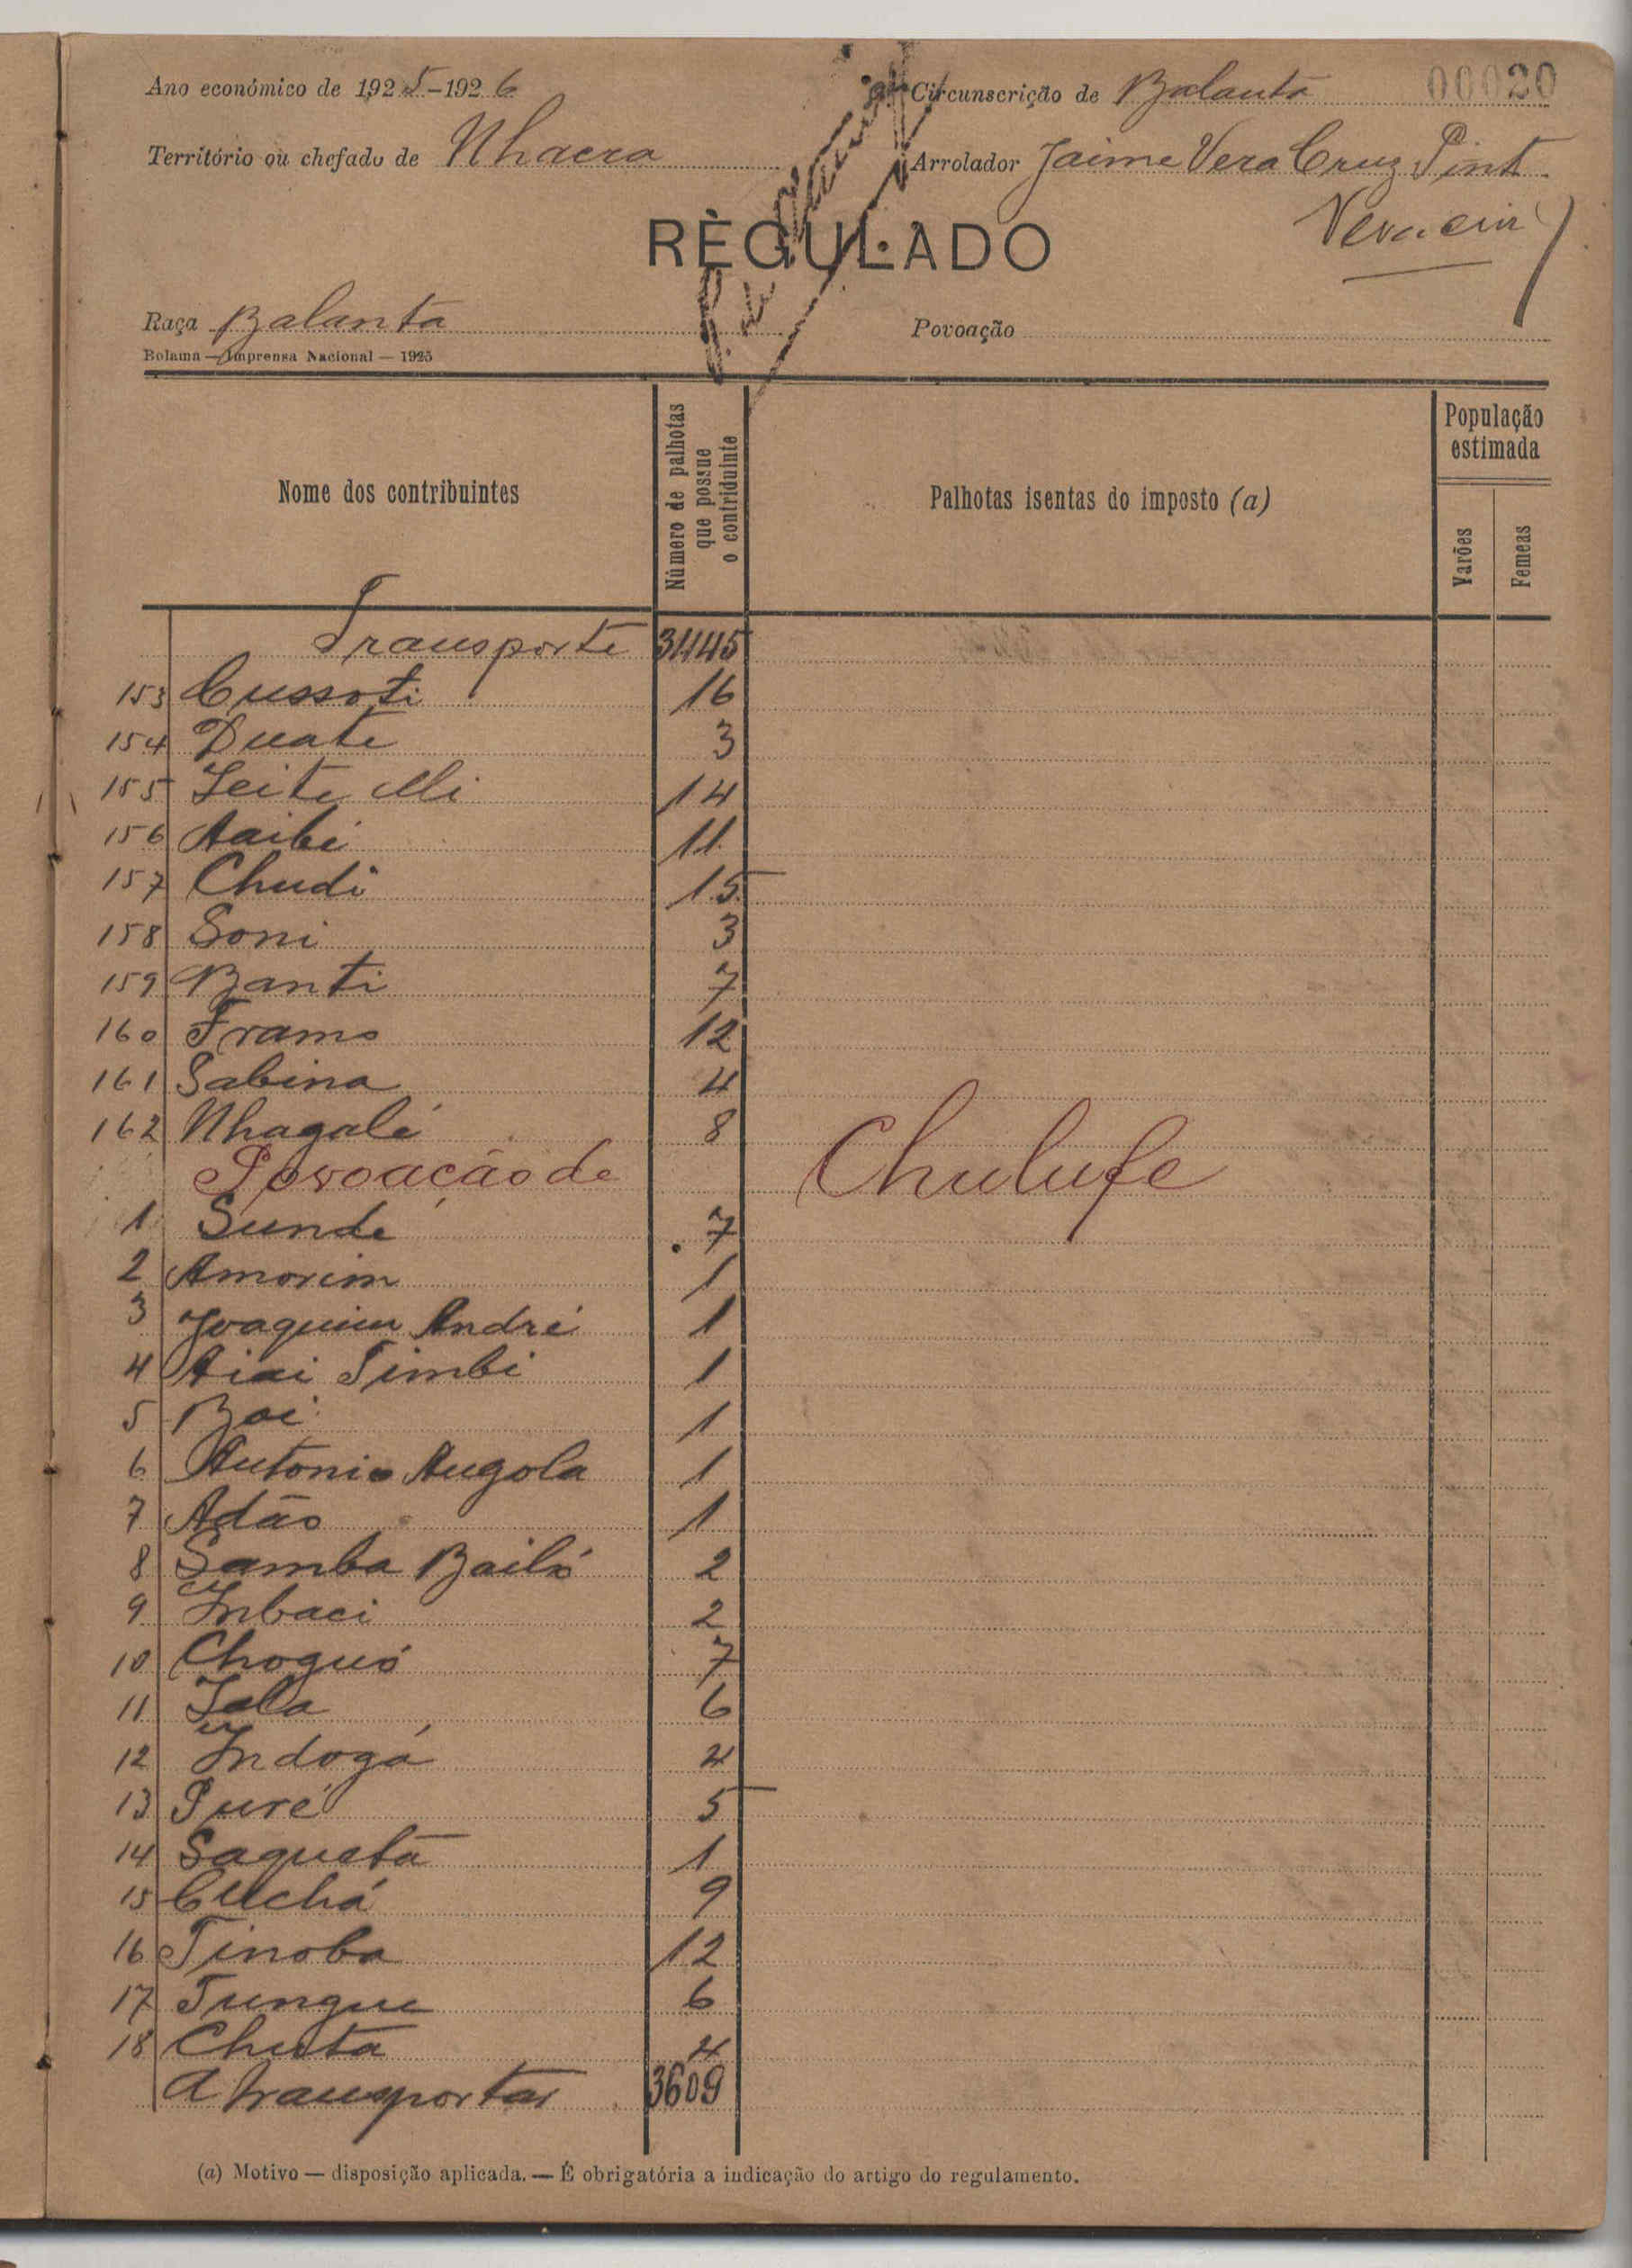 Ano económico de 1925-1926
Circunscrição de Balanta
00020
Território ou chefado de Nhacra
Arrolador Jaime Vera Cruz Pint
REGULADO
Raça Balanta
Povoação
Bolama — Imprensa Nacional — 1925
Nome dos contribuintes
Número de palhotas
que possue
o contriduinte
Palhotas isentas do imposto (a)
População
estimada
Varões
Femeas
Transporte 3445
153 Cussoti 16
154 Duate 3
155 Leite Mi 14
156 Aaibi 11
157 Chudi 15
158 Soni 3
159 Banti 7
160 Frams 12
161 Sabina 4
162 Nhagalé 8
Povoação de Chulufe
1 Sundé 7
2 Amorim 1
3 Joaquim André 1
4 Aiai Timbi 1
5 Boi 1
6 Antonio Angola 1
7 Adão 1
8 Samba Bailó 2
9 Inbaci 2
10 Choguó 7
11 Iala 6
12 Indogá 4
13 Puré 5
14 Saquetá 1
15 Cuchá 9
16 Tinoba 12
17 Tungue 6
18 Chuta 4
A transportar 3609
(a) Motivo — disposição aplicada. — É obrigatória a indicação do artigo do regulamento.